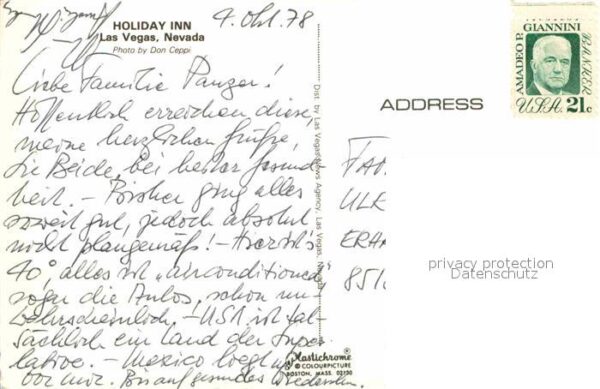 HOLIDAY INN
Las Vegas, Nevada
Photo by Don Ceppi
4. Okt. 78
Liebe Familie Panzer!
Hoffentlich erreichen diese,
meine herzlichen Grüße,
Sie Beide, bei bester Gesund-
heit. - Bisher ging alles
soweit gut, jedoch absolut
nicht plangemäß! - Hier ist's
40°, alles ist "airconditioned",
sogar die Autos, schon un-
wahrscheinlich. - USA ist tat-
sächlich ein Land der Super-
lative. - Mexico liegt
vor mir. Bis auf gesundes Wiedersehn.
Dist. by Las Vegas News Agency, Las Vegas, Nevada
Plastichrome
® COLOURPICTURE
BOSTON, MASS. 02130
ADDRESS
AMADEO P. GIANNINI
BANKER
U.S.A. 21c
ULR
ERA
privacy protection
Datenschutz